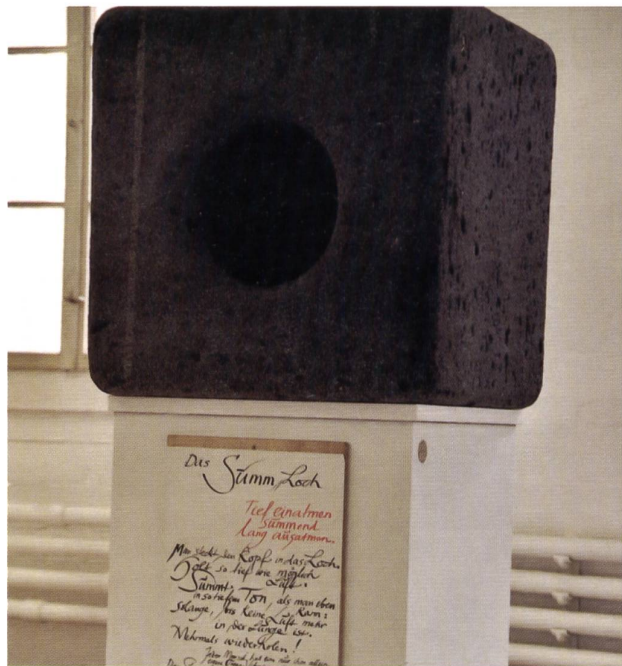 Das Summ Loch
Tief einatmen
Summend
lang ausatmen.
Man steckt den Kopf in das Loch.
Holt so tief wie möglich
Luft.
Summt,
in so tiefem Ton, als man eben
kann:
solange, bis keine Luft mehr
in der Lunge ist.
Mehrmals wiederholen!